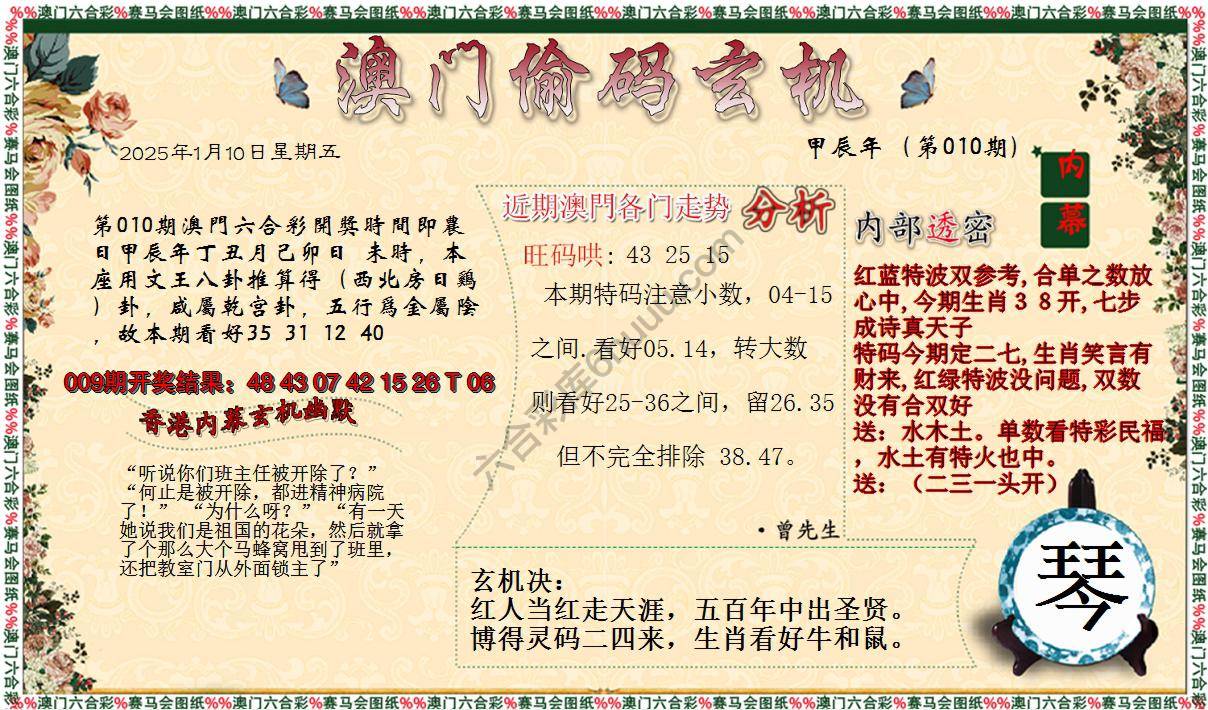 %%澳门六合彩%赛马会图纸%%澳门六合彩%赛马会图纸%%澳门六合彩%赛马会图纸
澳门偷码玄机
2025年1月10日星期五
甲辰年（第010期）
内幕
第010期澳門六合彩開獎時間即農
日甲辰年丁丑月己卯日 未時，本
座用文王八卦推算得（西北房日鷄
）卦，咸屬乾宫卦，五行爲金屬陰
，故本期看好35 31 12 40
009期开奖结果：48 43 07 42 15 26 T 06
香港内幕玄机幽默
“听说你们班主任被开除了？”
“何止是被开除，都进精神病院
了！” “为什么呀？” “有一天
她说我们是祖国的花朵，然后就拿
了个那么大个马蜂窝甩到了班里，
还把教室门从外面锁主了”
近期澳門各门走势 分析
旺码哄: 43 25 15
本期特码注意小数，04-15
之间.看好05.14，转大数
则看好25-36之间，留26.35
但不完全排除 38.47。
·曾先生
内部透密
红蓝特波双参考,合单之数放
心中,今期生肖３８开,七步
成诗真天子
特码今期定二七,生肖笑言有
财来,红绿特波没问题,双数
没有合双好
送：水木土。单数看特彩民福
，水土有特火也中。
送：（二三一头开）
玄机决：
红人当红走天涯，五百年中出圣贤。
博得灵码二四来，生肖看好牛和鼠。
琴